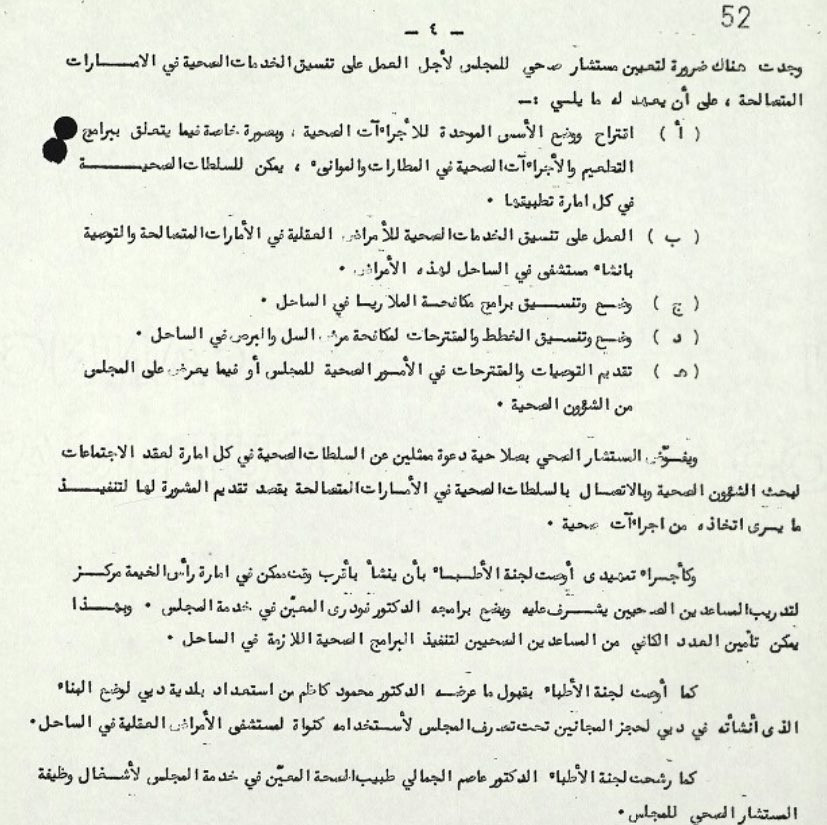 52
- ٤ -
وجدت هناك ضرورة لتعيين مستشار صحي للمجلس لأجل العمل على تنسيق الخدمات الصحية في الامارات
المتصالحة ، على أن يعهد له ما يلي :-
( أ ) اقتراح ووضع الأسس الموحدة للأجراءآت الصحية ، وبصورة خاصة فيما يتعلق ببرامج
التطعيم والأجراءآت الصحية في المطارات والموانىء ، يمكن للسلطات الصحية
في كل امارة تطبيقها .
( ب ) العمل على تنسيق الخدمات الصحية للأمراض العقلية في الأمارات المتصالحة والتوصية
بانشاء مستشفى في الساحل لهذه الأمراض .
( ج ) وضع وتنسيق برامج مكافحة الملاريا في الساحل .
( د ) وضع وتنسيق الخطط والمقترحات لمكافحة مرض السل والبرص في الساحل .
( هـ ) تقديم التوصيات والمقترحات في الأمور الصحية للمجلس أو فيما يعرض على المجلس
من الشؤون الصحية .
ويفوّض المستشار الصحي بصلاحية دعوة ممثلين عن السلطات الصحية في كل امارة لعقد الاجتماعات
لبحث الشؤون الصحية وبالاتصال بالسلطات الصحية في الأمارات المتصالحة بقصد تقديم المشورة لها لتنفيذ
ما يرى اتخاذه من اجراءآت صحية .
وكأجراء تمهيدى أوصت لجنة الأطباء بأن ينشأ بأقرب وقت ممكن في امارة رأس الخيمة مركز
لتدريب المساعدين الصحيين يشرف عليه ويضع برامجه الدكتور فودرى المعيّن في خدمة المجلس . وبهذا
يمكن تأمين العدد الكافي من المساعدين الصحيين لتنفيذ البرامج الصحية اللازمة في الساحل .
كما أوصت لجنة الأطباء بقبول ما عرضه الدكتور محمود كاظم من استعداد بلدية دبي لوضع البناء
الذى أنشأته في دبي لحجز المجانين تحت تصرف المجلس لأستخدامه كنواة لمستشفى الأمراض العقلية في الساحل .
كما رشحت لجنة الأطباء الدكتور عاصم الجمالي طبيب الصحة المعيّن في خدمة المجلس لأشغال وظيفة
المستشار الصحي للمجلس .